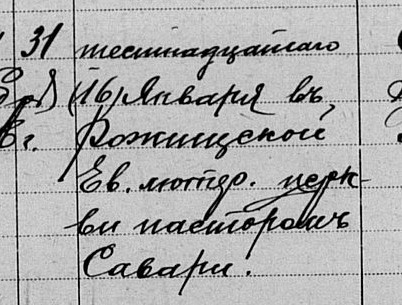 31 шестнадцатаго
(16) Января въ
Рожищской
Ев. лютер. церк-
ви пасторомъ
Савари.